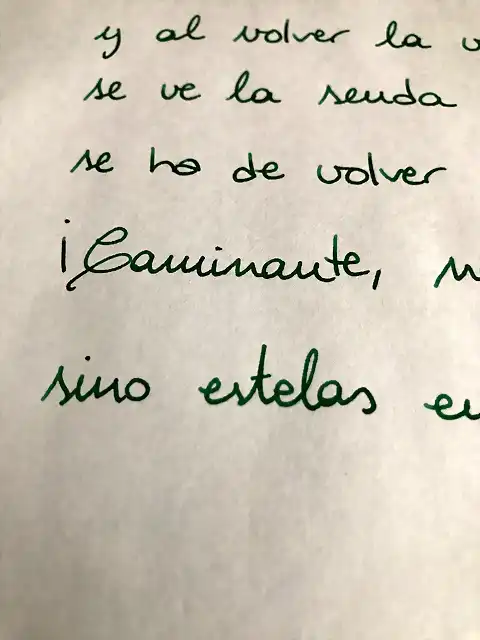 y al volver la v
se ve la senda
se ha de volver
¡Caminante, n
sino estelas en